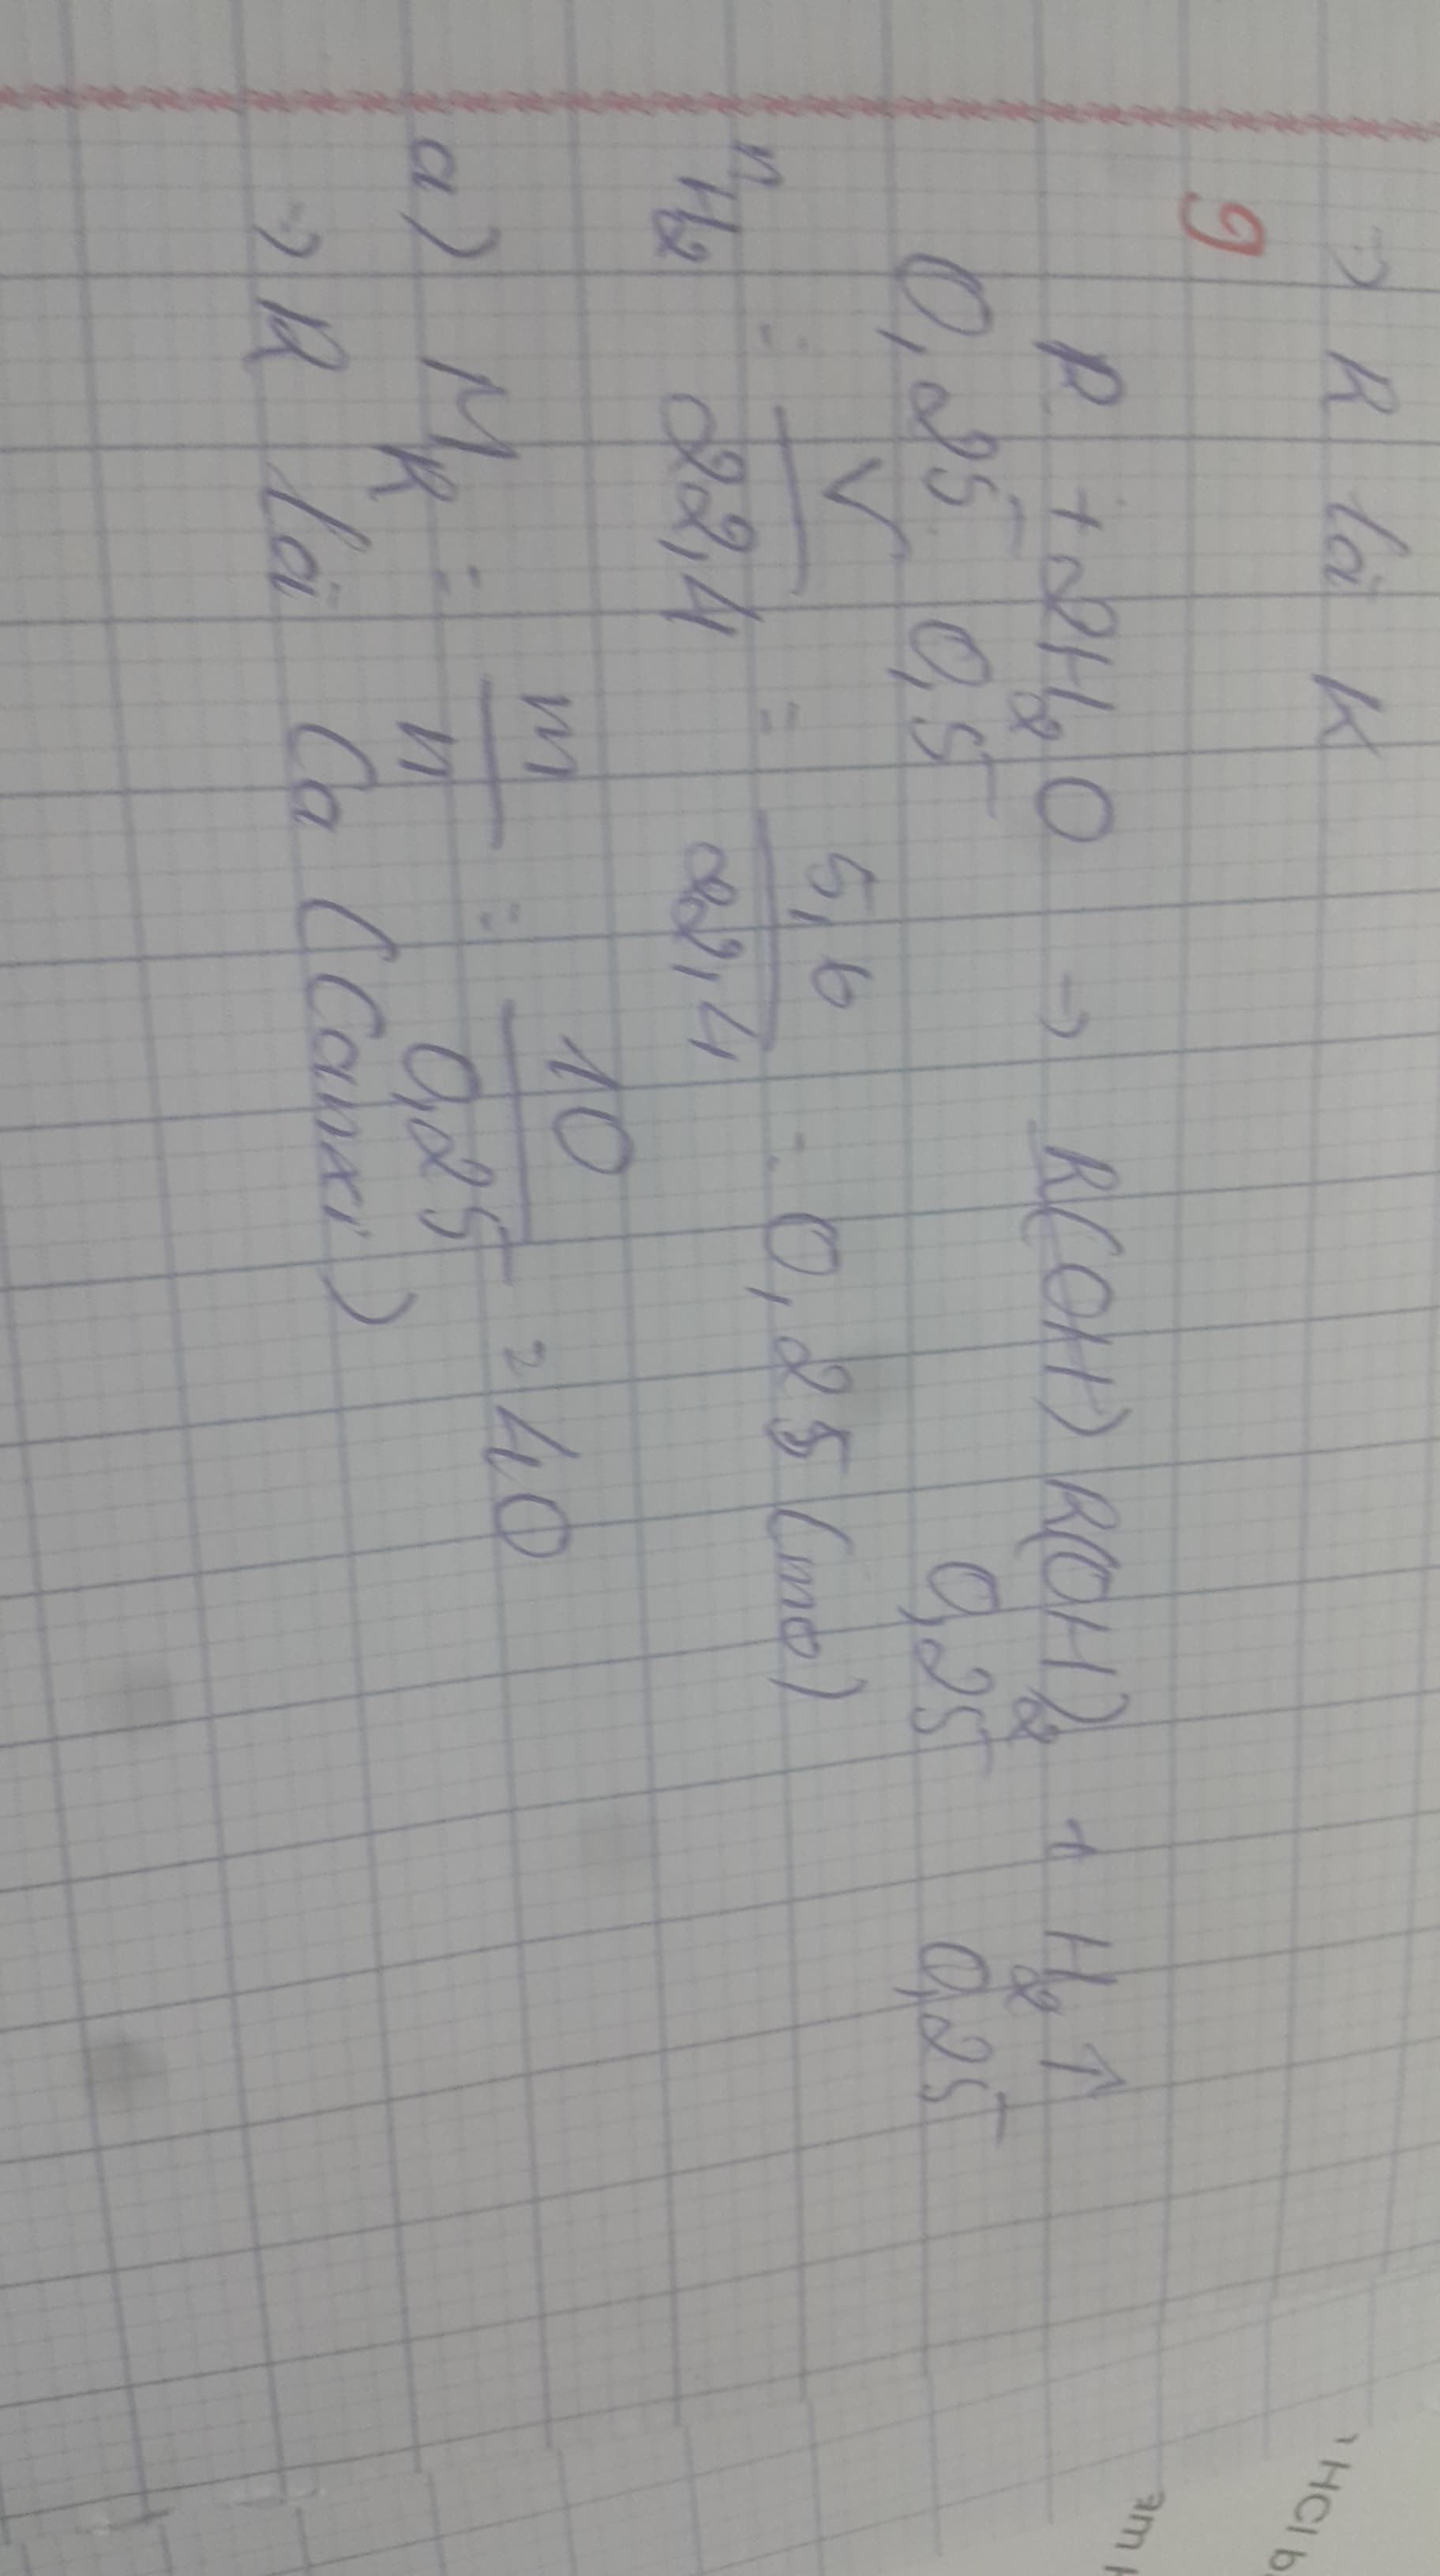 => R là K
9
R + 2H2O -> R(OH) R(OH)2 + H2↑
0,25 0,5 0,25 0,25
nH2 = V/22,4 = 5,6/22,4 = 0,25 (mo)
a) MR = m/n = 10/0,25 = 40
=> R là Ca (Canxi)
HCl b